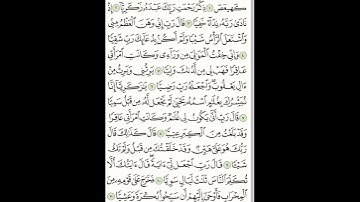 كٓهيعٓصٓ ١ ذِكْرُ رَحْمَتِ رَبِّكَ عَبْدَهُۥ زَكَرِيَّآ ٢ إِذْ
نَادَىٰ رَبَّهُۥ نِدَآءً خَفِيًّا ٣ قَالَ رَبِّ إِنِّى وَهَنَ ٱلْعَظْمُ مِنِّى
وَٱشْتَعَلَ ٱلرَّأْسُ شَيْبًا وَلَمْ أَكُنۢ بِدُعَآئِكَ رَبِّ شَقِيًّا
٤ وَإِنِّى خِفْتُ ٱلْمَوَٰلِىَ مِن وَرَآءِى وَكَانَتِ ٱمْرَأَتِى
عَاقِرًا فَهَبْ لِى مِن لَّدُنكَ وَلِيًّا ٥ يَرِثُنِى وَيَرِثُ مِنْ
ءَالِ يَعْقُوبَ وَٱجْعَلْهُ رَبِّ رَضِيًّا ٦ يَٰزَكَرِيَّآ إِنَّا
نُبَشِّرُكَ بِغُلَٰمٍ ٱسْمُهُۥ يَحْيَىٰ لَمْ نَجْعَل لَّهُۥ مِن قَبْلُ سَمِيًّا
٧ قَالَ رَبِّ أَنَّىٰ يَكُونُ لِى غُلَٰمٌ وَكَانَتِ ٱمْرَأَتِى عَاقِرًا
وَقَدْ بَلَغْتُ مِنَ ٱلْكِبَرِ عِتِيًّا ٨ قَالَ كَذَٰلِكَ قَالَ
رَبُّكَ هُوَ عَلَىَّ هَيِّنٌ وَقَدْ خَلَقْتُكَ مِن قَبْلُ وَلَمْ تَكُ
شَيْـًٔا ٩ قَالَ رَبِّ ٱجْعَل لِّىٓ ءَايَةً قَالَ ءَايَتُكَ أَلَّا
تُكَلِّمَ ٱلنَّاسَ ثَلَٰثَ لَيَالٍ سَوِيًّا ١٠ فَخَرَجَ عَلَىٰ قَوْمِهِۦ مِنَ
ٱلْمِحْرَابِ فَأَوْحَىٰٓ إِلَيْهِمْ أَن سَبِّحُوا۟ بُكْرَةً وَعَشِيًّا ١١